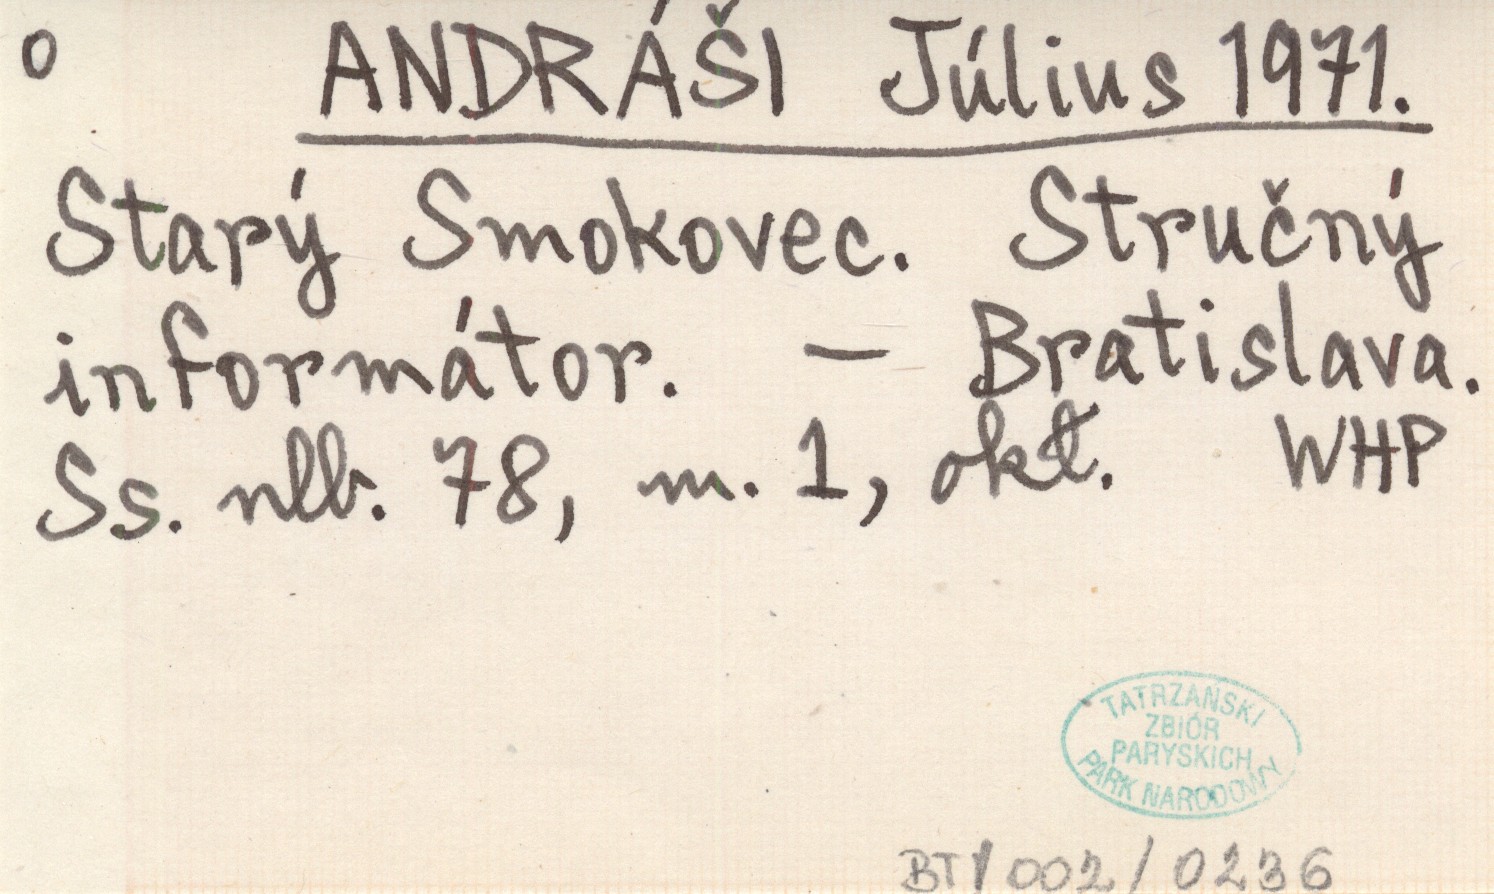 o ANDRÁŠI Július 1971.
Starý Smokovec. Stručný
informátor. — Bratislava.
Ss. nlb. 78, m. 1, okł. WHP
TATRZAŃSKI
ZBIÓR
PARYSKICH
PARK NARODOWY
BT/002/0236